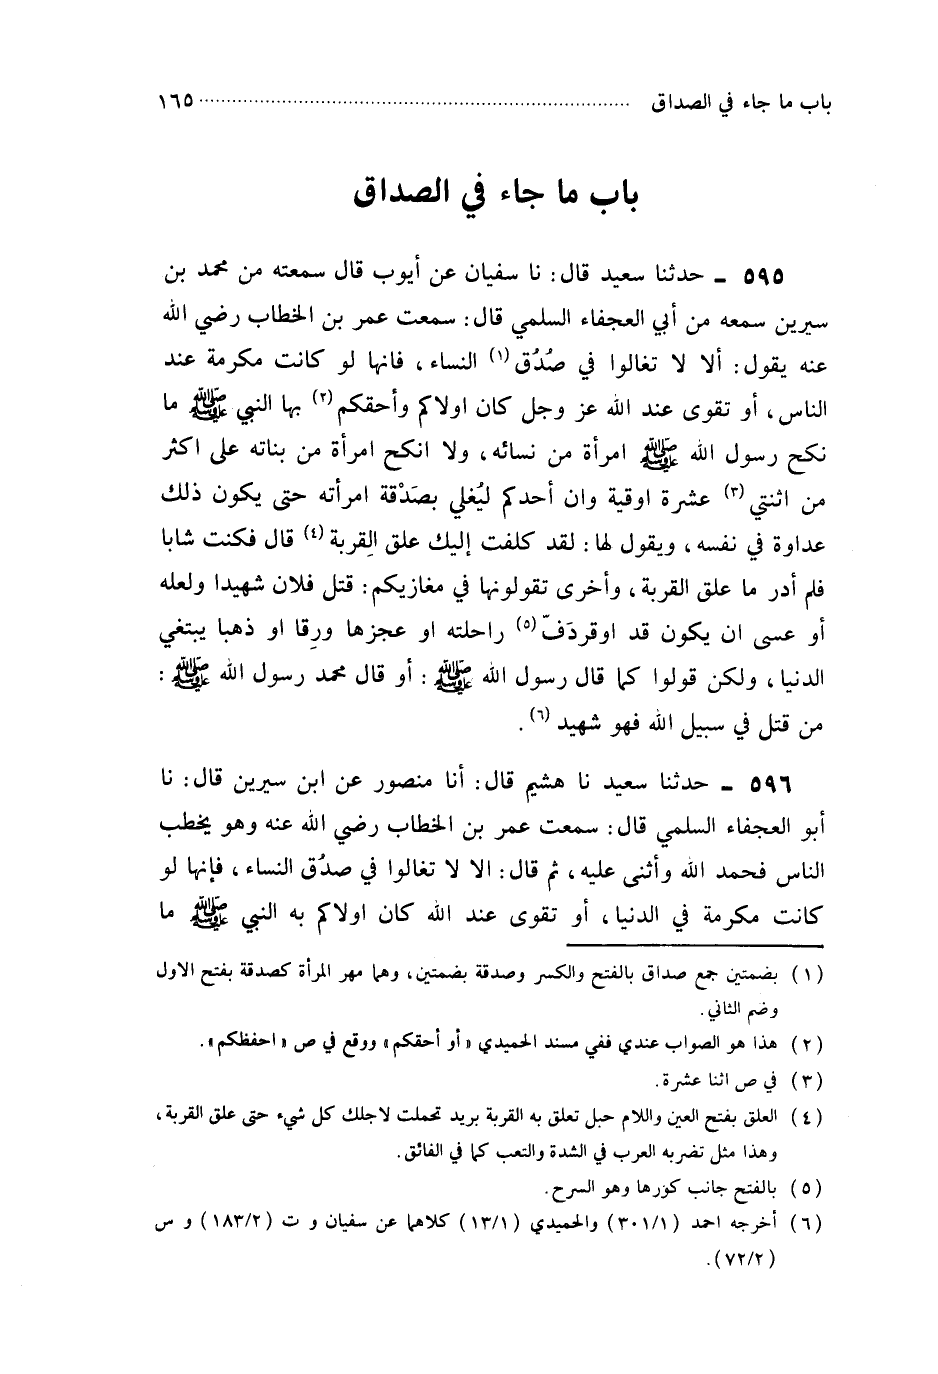 باب ما جاء في الصداق ........................................ ١٦٥
باب ما جاء في الصداق
٥٩٥ ـ حدثنا سعيد قال: نا سفيان عن أيوب قال سمعته من محمد بن
سيرين سمعه من أبي العجفاء السلمي قال: سمعت عمر بن الخطاب رضي الله
عنه يقول: ألا لا تغالوا في صُدُق (١) النساء، فانها لو كانت مكرمة عند
الناس، أو تقوى عند الله عز وجل كان اولاكم وأحقكم (٢) بها النبي ﷺ ما
نكح رسول الله ﷺ امرأة من نسائه، ولا انكح امرأة من بناته على اكثر
من اثنتي (٣) عشرة اوقية وان أحدكم ليُغلي بصَدْقة امرأته حتى يكون ذلك
عداوة في نفسه، ويقول لها: لقد كلفت إليك علق القِربة (٤) قال فكنت شابا
فلم أدر ما علق القربة، وأخرى تقولونها في مغازيكم: قتل فلان شهيدا ولعله
أو عسى ان يكون قد اوقردَفّ (٥) راحلته او عجزها ورِقا او ذهبا يبتغي
الدنيا، ولكن قولوا كما قال رسول الله ﷺ: أو قال محمد رسول الله ﷺ:
من قتل في سبيل الله فهو شهيد (٦).
٥٩٦ ـ حدثنا سعيد نا هشيم قال: أنا منصور عن ابن سيرين قال: نا
أبو العجفاء السلمي قال: سمعت عمر بن الخطاب رضي الله عنه وهو يخطب
الناس فحمد الله وأثنى عليه، ثم قال: الا لا تغالوا في صدُق النساء، فإنها لو
كانت مكرمة في الدنيا، أو تقوى عند الله كان اولاكم به النبي ﷺ ما
(١) بضمتين جمع صداق بالفتح والكسر وصدقة بضمتين، وهما مهر المرأة كصدقة بفتح الاول
وضم الثاني.
(٢) هذا هو الصواب عندي ففي مسند الحميدي «أو أحقكم» ووقع في ص «احفظكم».
(٣) في ص اثنا عشرة.
(٤) العلق بفتح العين واللام حبل تعلق به القربة يريد تحملت لاجلك كل شيء حتى علق القربة،
وهذا مثل تضربه العرب في الشدة والتعب كما في الفائق.
(٥) بالفتح جانب كورها وهو السرج.
(٦) أخرجه احمد (٣٠١/١) والحميدي (١٣/١) كلاهما عن سفيان و ت (١٨٣/٢) و س
(٧٢/٢).